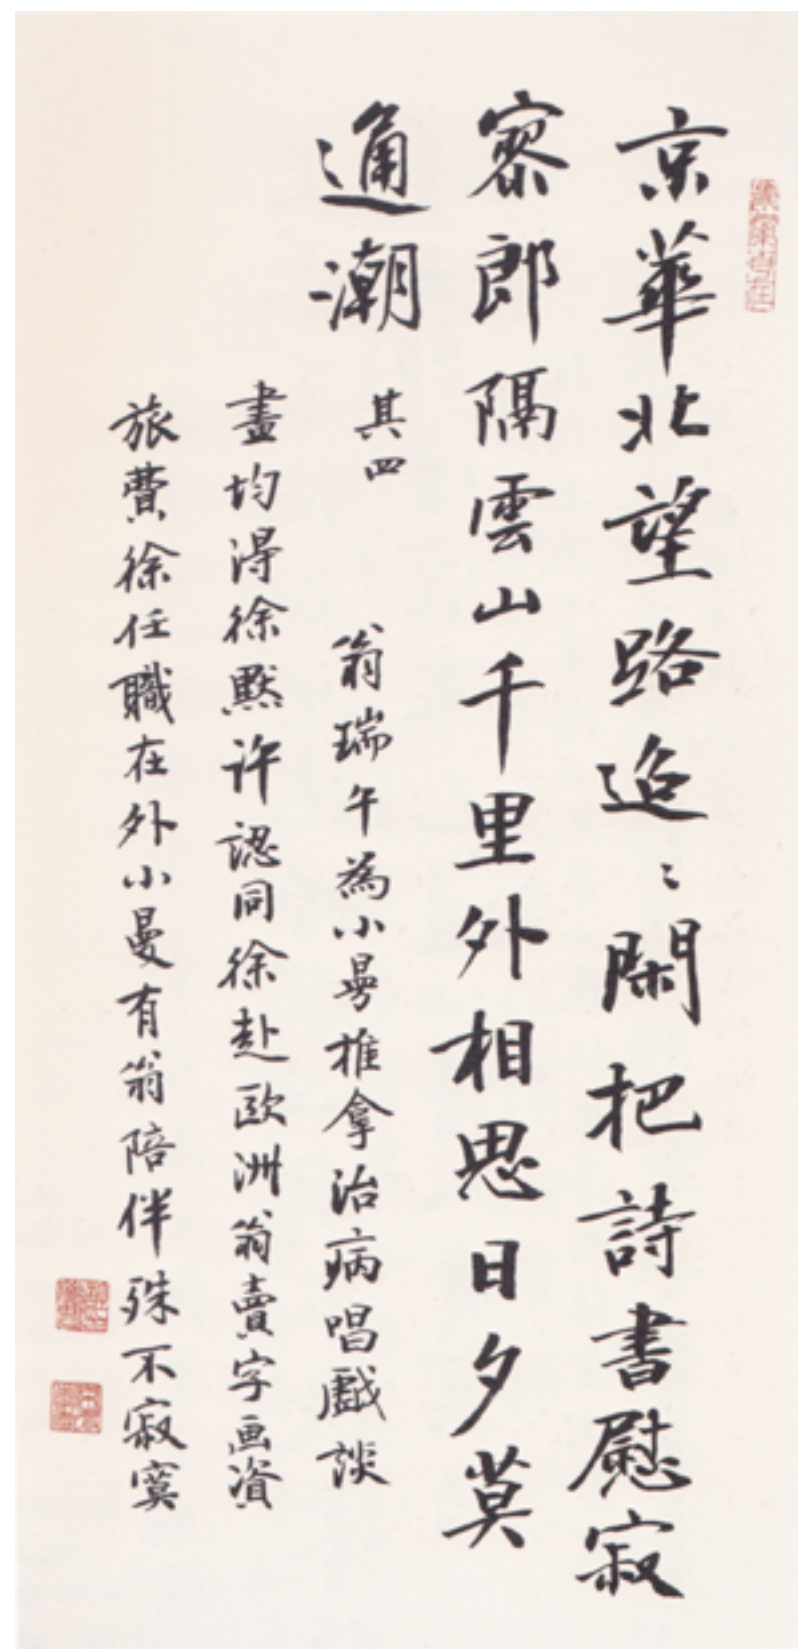 京華北望路迢〻閑把詩書慰寂
寥郎隔雲山千里外相思日夕莫
通潮
其四
翁瑞午為小曼推拿治病唱戲談
畫均得徐默许認同徐赴歐洲翁賣字画資
旅費徐任職在外小曼有翁陪伴殊不寂寞